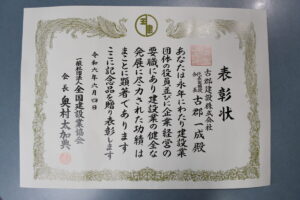 表彰状
古郡建設株式会社
古郡一成殿
あなたは永年にわたり建設業
団体の役員並びに企業経営の
要職にあり建設業の健全な
発展に尽力された功績は
まことに顕著であります
ここに記念品を贈り表彰します
令和六年六月四日
一般社団法人全国建設業協会
会長奥村太加典